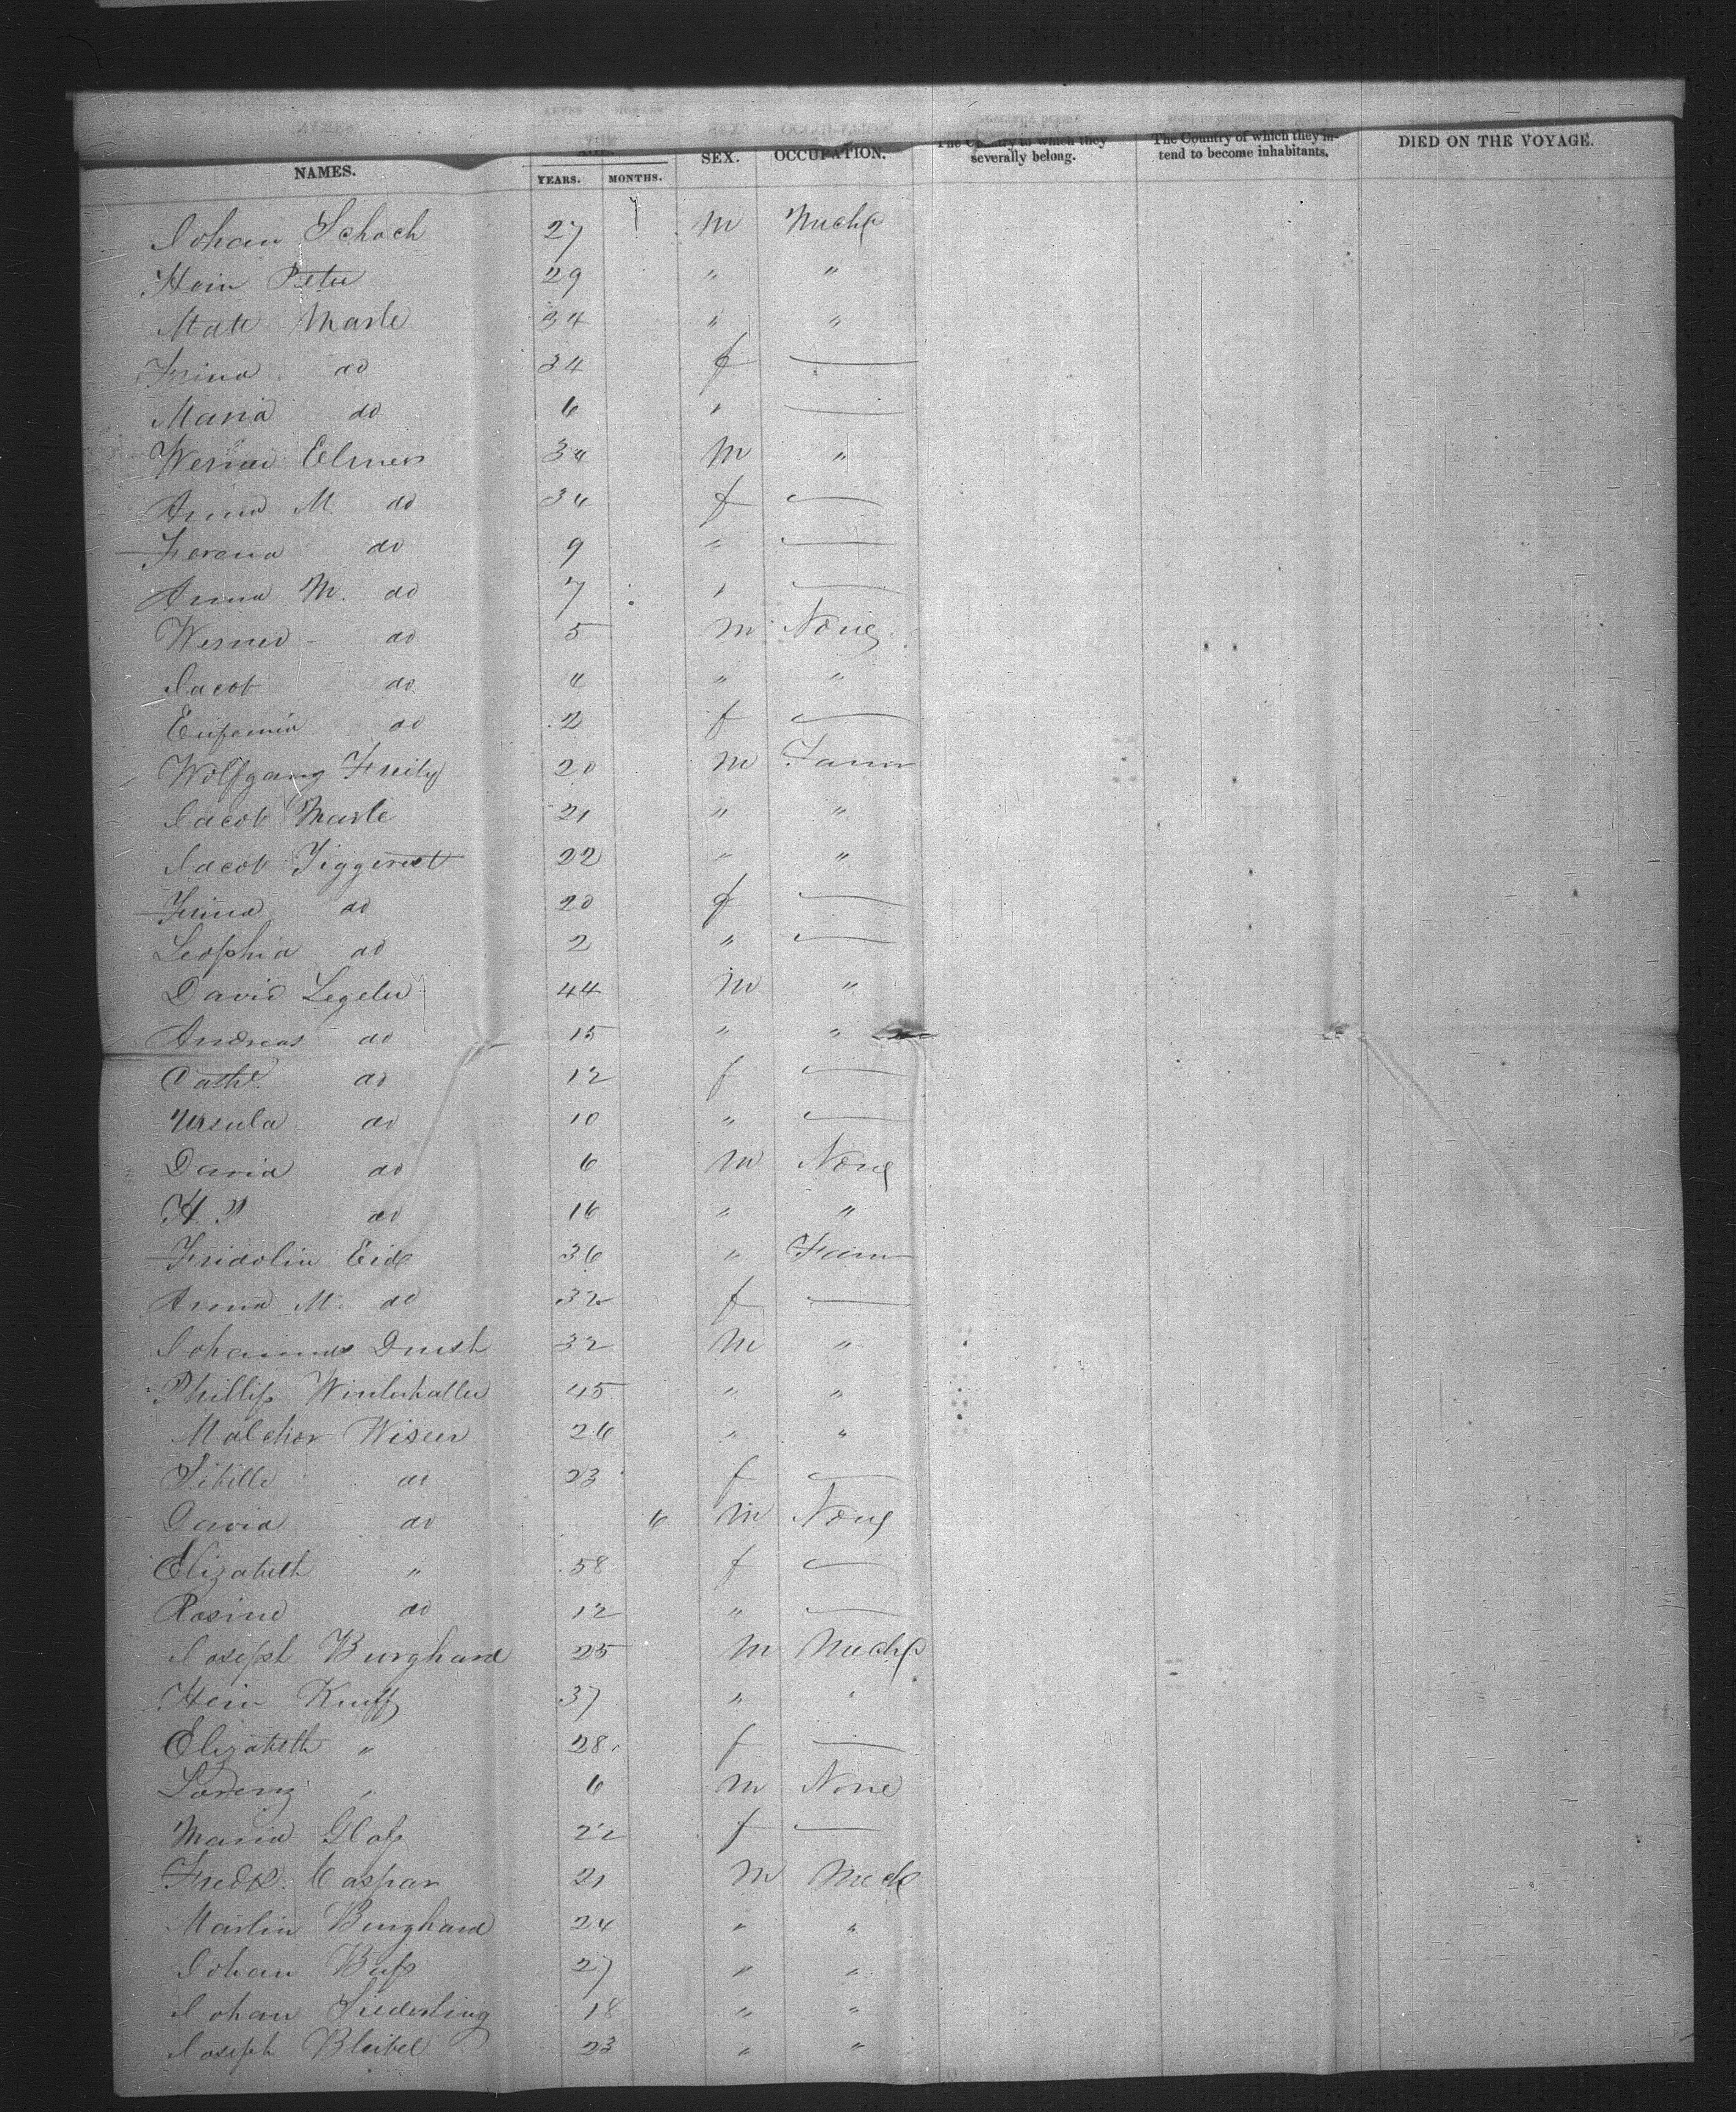 NAMES. AGE YEARS. MONTHS. SEX. OCCUPATION. The Country to which they severally belong. The Country of which they intend to become inhabitants. DIED ON THE VOYAGE.
Johan Schoch 27 m Mech
Hein Peter 29 " "
Matt Marte 34 " "
Frina do 34 f —
Maria do 6 " —
Werner Elmer 34 m "
Anna M. do 34 f —
Ferena do 9 " —
Anna M. do 7 " —
Werner do 5 m None
Jacob do 4 " "
Eufemia do 2 f —
Wolfgang 20 m Farmr
Jacob Marte 21 " "
Jacob Tiggerest 22 " "
Frina do 20 f —
Seophia do 2 " —
David Legeler 44 m "
Andreas do 15 " "
Cathe. do 12 f —
Ursula do 10 " —
David do 6 m None
H. P do 16 " "
Fridolin Eide 36 " Farm
Anna M. do 32 f —
Johannes Durst 32 m "
Phillip Winterhalter 45 " "
Malchior Wiser 26 " "
Sibille do 23 f —
David do 6 m None
Elizabeth " 58 f —
Rosine do 12 " —
Joseph Burghard 25 m Mech
Hein Knuff 37 " "
Elizabeth " 28 f —
Lorenz " 6 m None
Maria Glass 22 f —
Fredk. Caspar 21 m Mech
Martin Burghard 24 " "
Johan Buss 27 " "
Johan Siederling 18 " "
Joseph Bleibel 23 " "